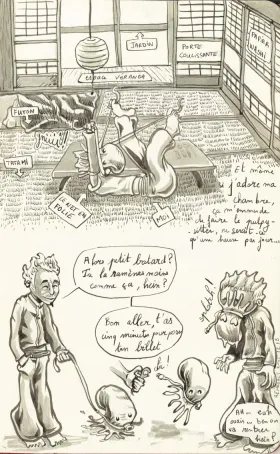 JARDIN
PORTE
COULISSANTE
ESPACE VERANDA
FUTON
TATAMI
MOI
Et même
si j'adore ma
chambre,
ça m'ennuie
de faire le
ne serait-ce
qu'une heure par jour...
Alors petit batard?
Tu la ramènes moins
comme ça, hein?
Bon aller, t'as
cinq minutes pour
ton billet
là!
splotch!
Ah... euh
ouais... bon on
va rentrer
hein?